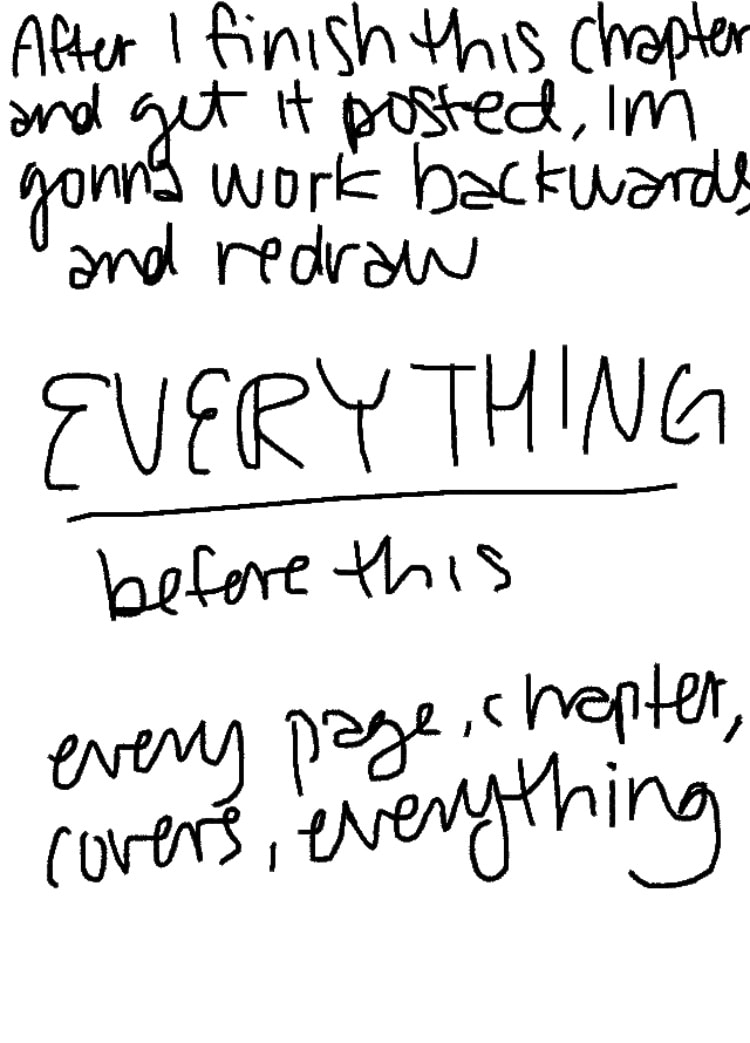 After I finish this chapter
and get it posted, Im
gonna work backwards
and redraw
EVERYTHING
before this
every page, chapter,
covers, everything